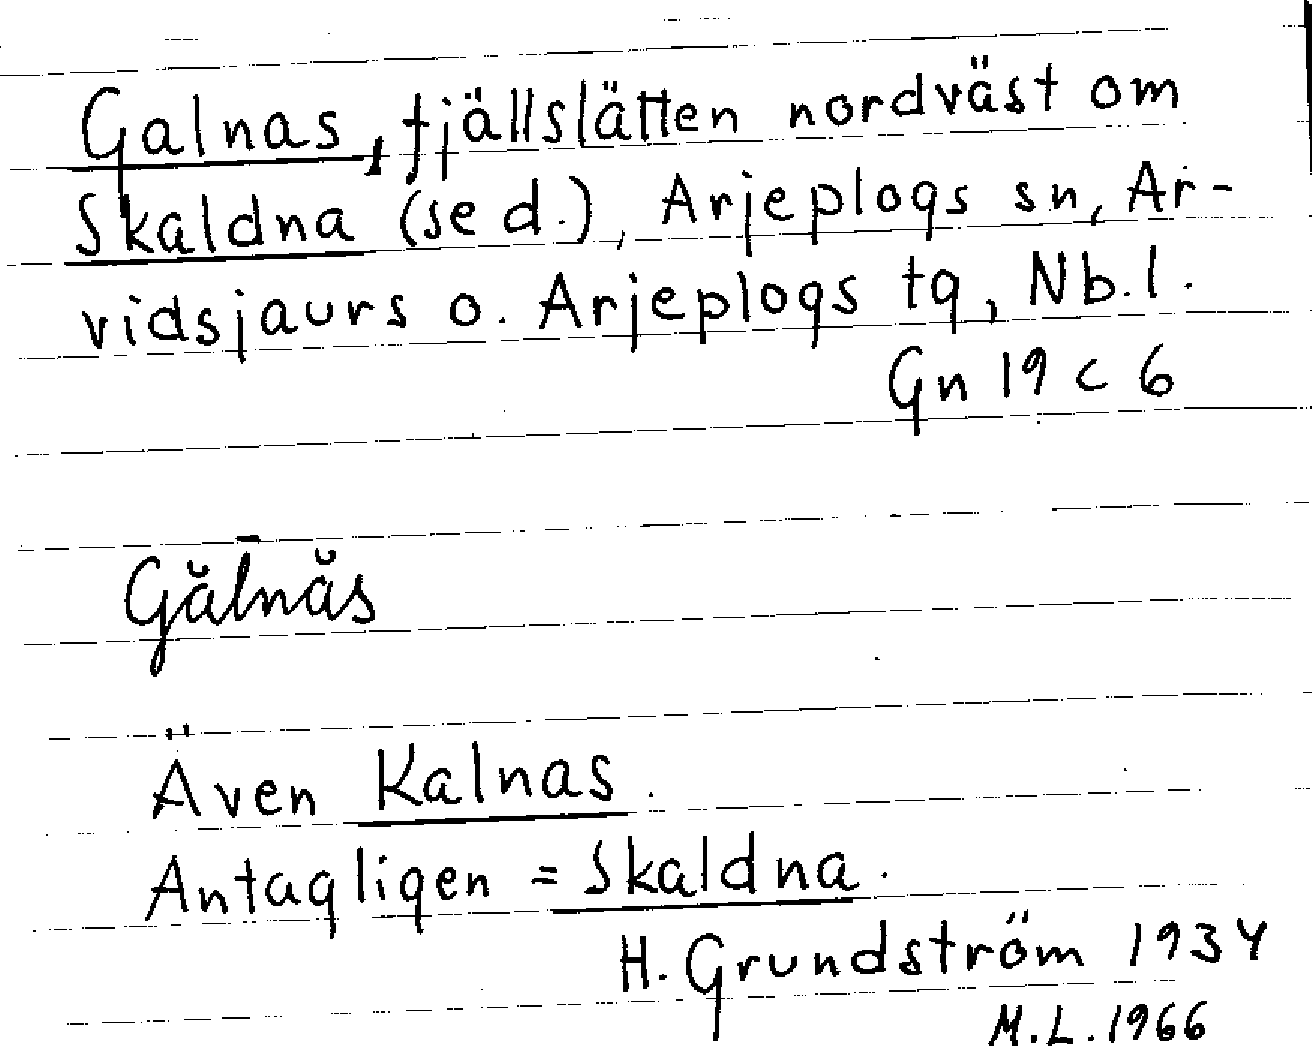 Galnas, fjällslätten nordväst om
Skaldna (se d.), Arjeplogs sn, Ar-
vidsjaurs o. Arjeplogs tg, Nb.l.
Gn 19 c 6
Gălnăs
Även Kalnas.
Antagligen = Skaldna.
H. Grundström 1934
M.L. 1966